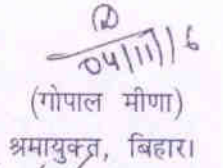 04/11/16
(गोपाल मीणा)
श्रमायुक्त, बिहार।